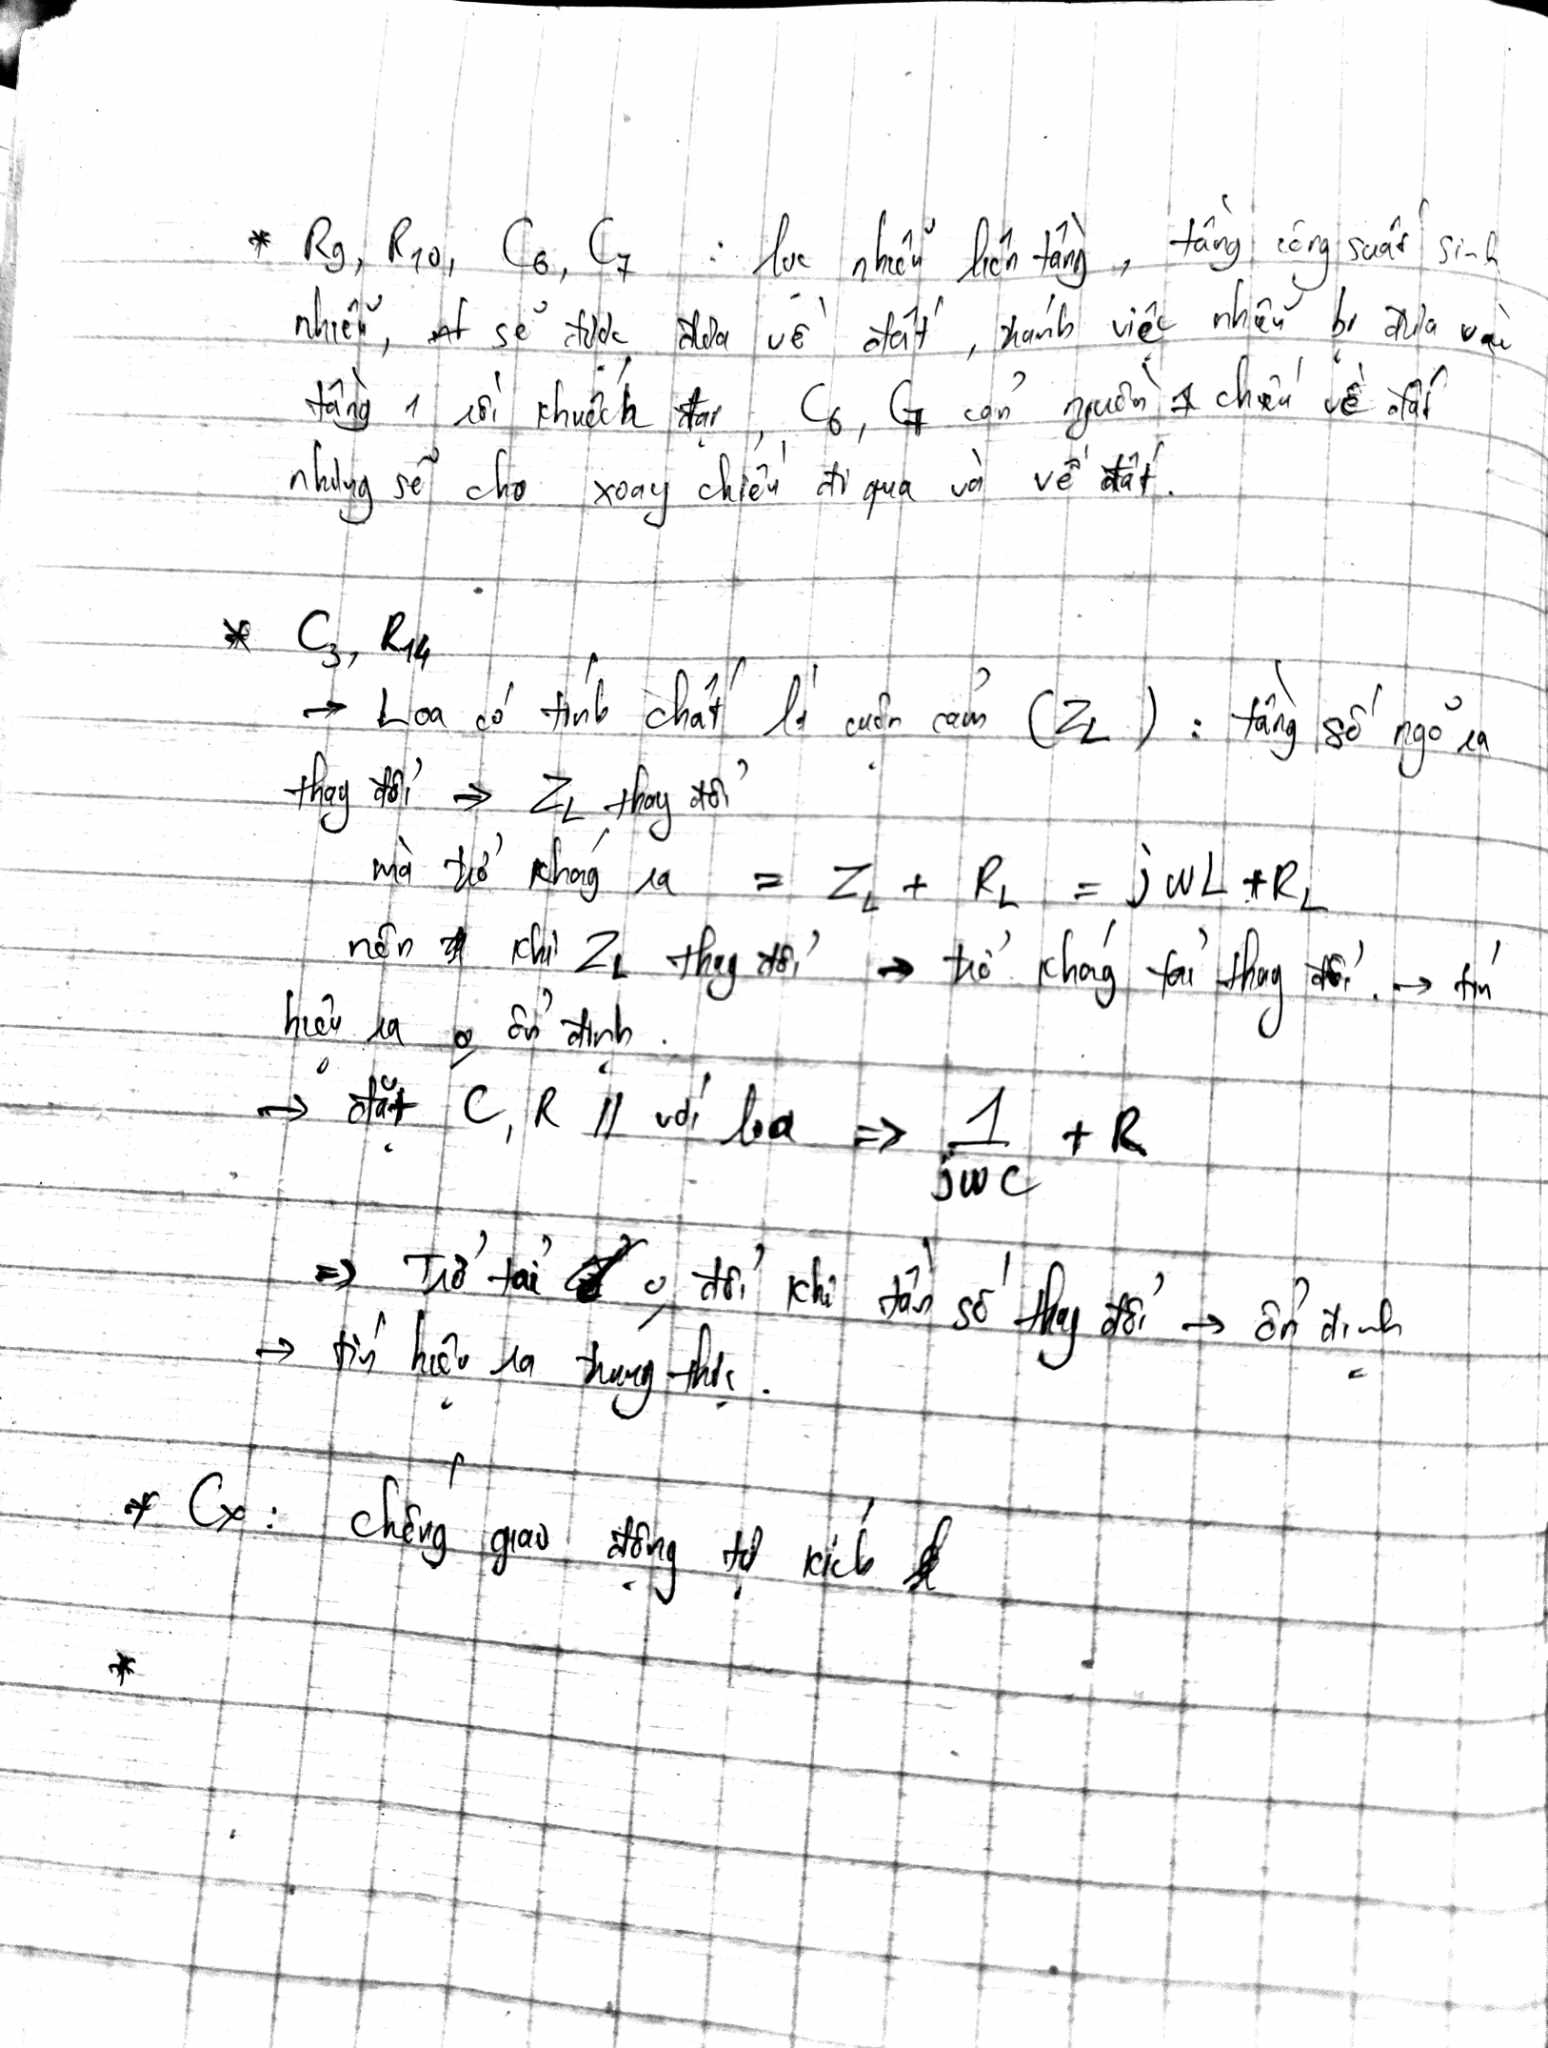 * R9, R10, C6, C7 : lọc nhiễu liên tầng, tầng công suất sinh
nhiễu, sẽ được đưa về đất, tránh việc nhiễu bị đưa vào
tầng 1 rồi khuếch đại, C6, C7 cản nguồn 1 chiều về đất
nhưng sẽ cho xoay chiều đi qua và về đất.
* C3, R14
→ Loa có tính chất là cuộn cảm (ZL) : tầng số ngõ ra
thay đổi ⇒ ZL thay đổi
mà trở kháng ra = ZL + RL = jωL + RL
nên khi ZL thay đổi → trở kháng tải thay đổi. → tín
hiệu ra ổn định.
→ đặt C, R // với loa ⇒ 1/jωC + R
⇒ Trở tải đổi khi tần số thay đổi → ổn định
→ tín hiệu ra trung thực.
* Cx: chống giao động tự kích
*